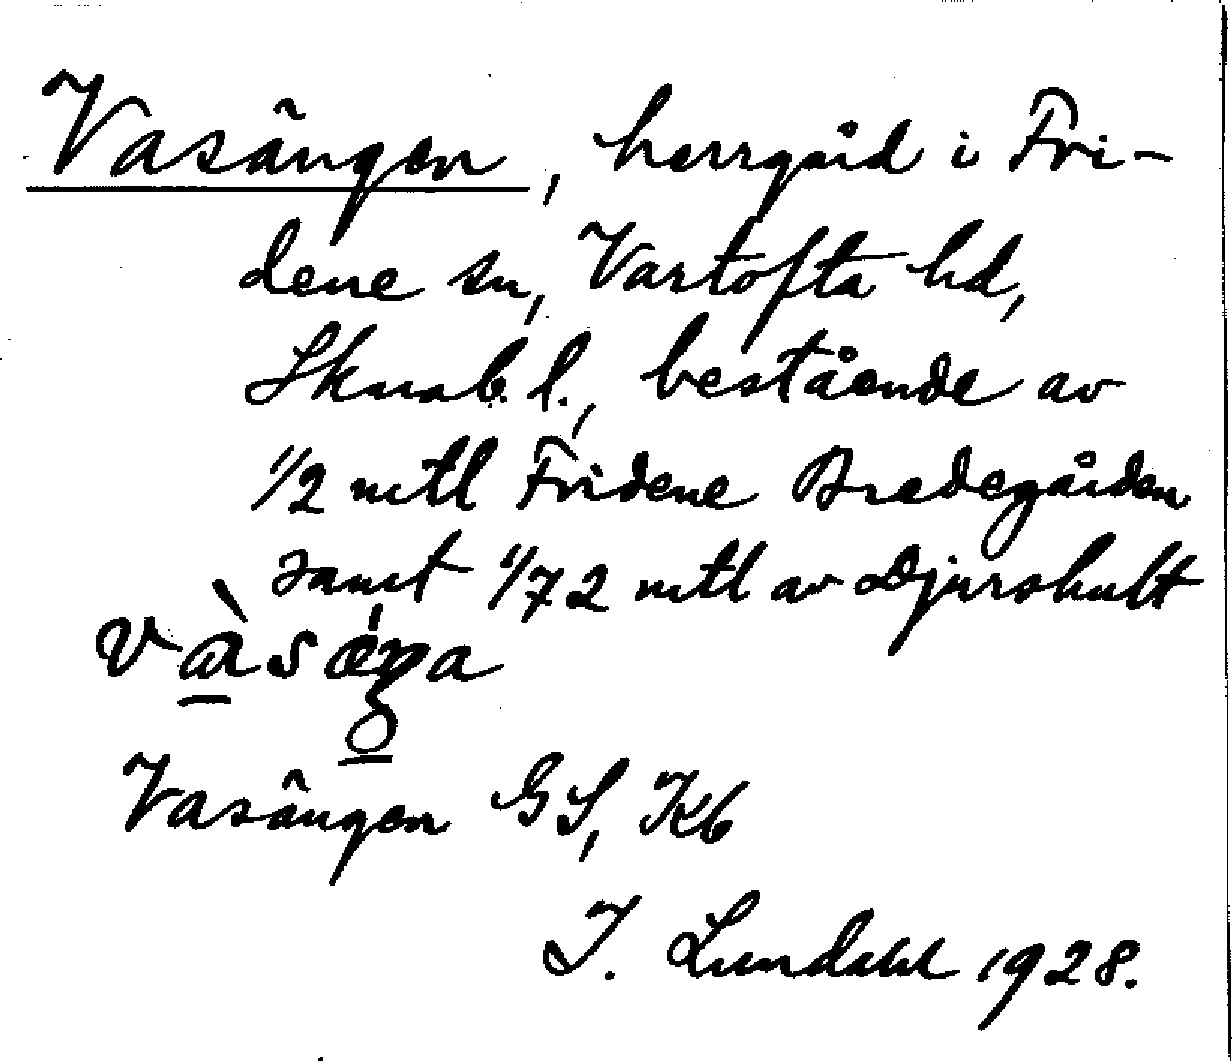 Vasängen, herrgård i Fri-
dene sn, Vartofta hd,
Skarab. l., bestående av
1/2 mtl Fridene Bredegården
samt 1/72 mtl av Djurshult
Vasängen GS, Kb
I. Lundahl 1928.